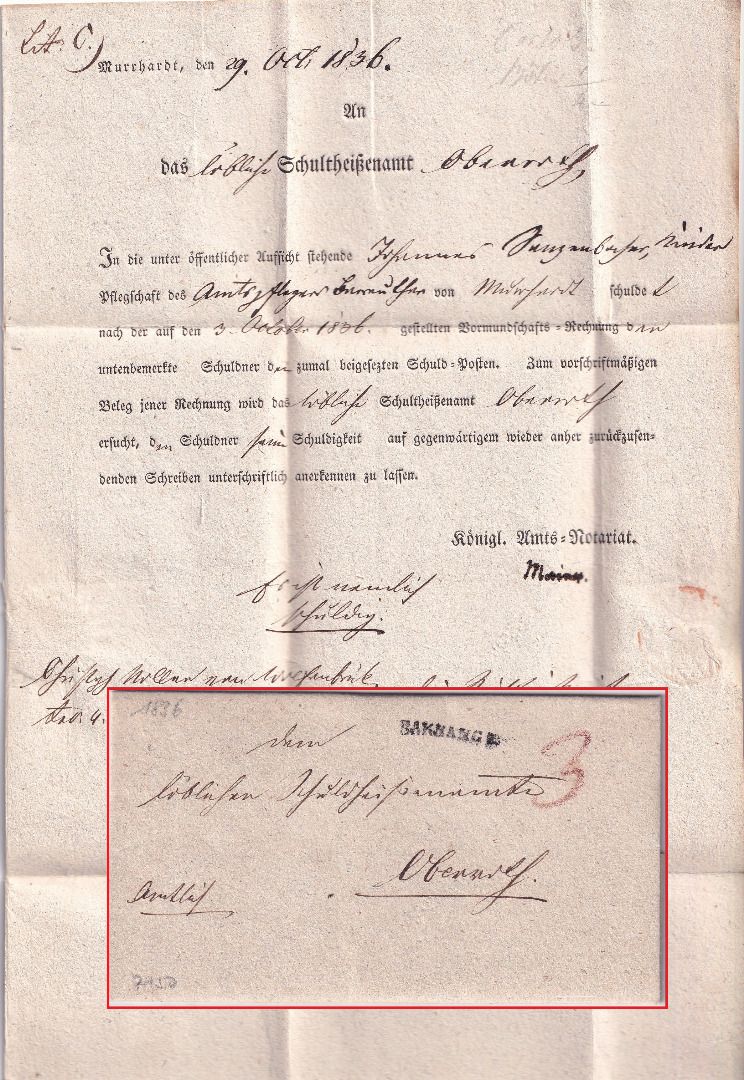 Lit. C.
Murrhardt, den 29. Oct. 1836.
An
das löbliche Schultheißenamt Oberroth
In die unter öffentlicher Aufsicht stehende Johannes Sanzenbacher, Kinder
Pflegschaft des Amtspflegers von Murrhardt schuldet
nach der auf den 3. October 1836. gestellten Vormundschafts-Rechnung den
untenbemerkte Schuldner den zumal beigesezten Schuld-Posten. Zum vorschriftmäßigen
Beleg jener Rechnung wird das löbliche Schultheißenamt Oberroth
ersucht, den Schuldner seine Schuldigkeit auf gegenwärtigem wieder anher zurückzusen-
denden Schreiben unterschriftlich anerkennen zu lassen.
Königl. Amts-Notariat.
Es ist nemlich
schuldig.
Christoph von
1836
dem
BAKNANG
3
löblichen Schuldheißenamte
Oberroth.
Amtlich